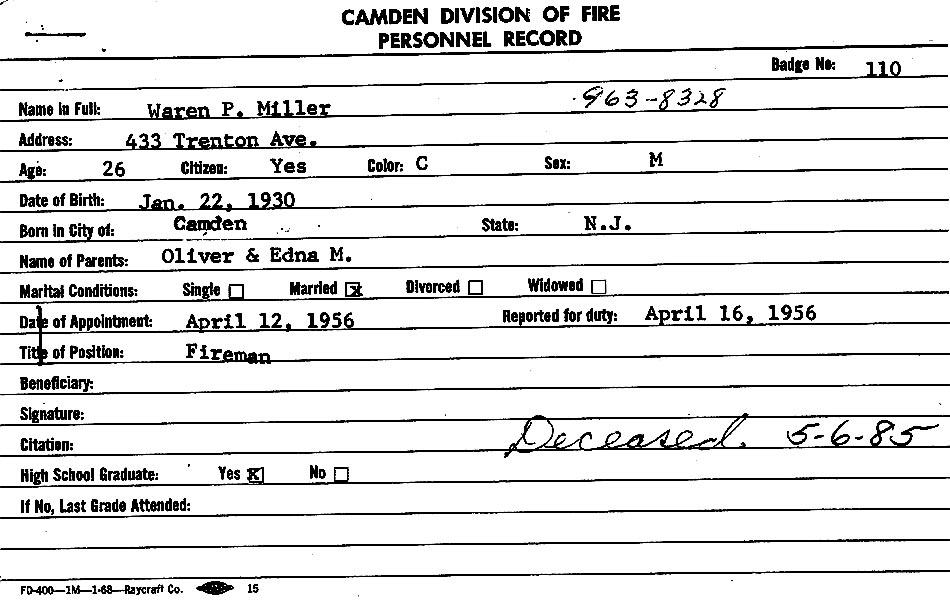 CAMDEN DIVISION OF FIRE
PERSONNEL RECORD
Badge No: 110
Name In Full: Waren P. Miller 963-8328
Address: 433 Trenton Ave.
Age: 26 Citizen: Yes Color: C Sex: M
Date of Birth: Jan. 22, 1930
Born in City of: Camden State: N.J.
Name of Parents: Oliver & Edna M.
Marital Conditions: Single Married x Divorced Widowed
Date of Appointment: April 12, 1956 Reported for duty: April 16, 1956
Title of Position: Fireman
Beneficiary:
Signature:
Citation: Deceased. 5-6-85
High School Graduate: Yes X No
If No, Last Grade Attended:
FD-400—1M—1-68—Raycraft Co. 15